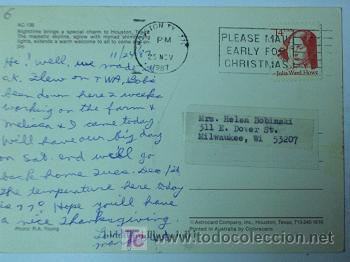 AC-136
Nighttime brings a special charm to Houston, Texas.
The majestic skyline, aglow with myriad shimmering
lights, extends a warm welcome to all to come and
11/24/87
Hi, well, we made
it. Flew on TWA,
been down here 2 weeks
working on the farm &
Melissa & I came today
will have our big day
on Sat. and we'll go
back home Tues. Dec 1st
The temperature here today
is 77° Hope you'll have
a nice Thanksgiving.
Photo: R.A. Young
PM
25 NOV
1987
PLEASE MAIL
EARLY FOR
CHRISTMAS
14
Julia Ward Howe
Mrs. Helen Bobinski
311 E. Dover St.
Milwaukee, WI 53207
© Astrocard Company, Inc., Houston, Texas,
Printed in Australia by Colorscans
todocoleccion.net